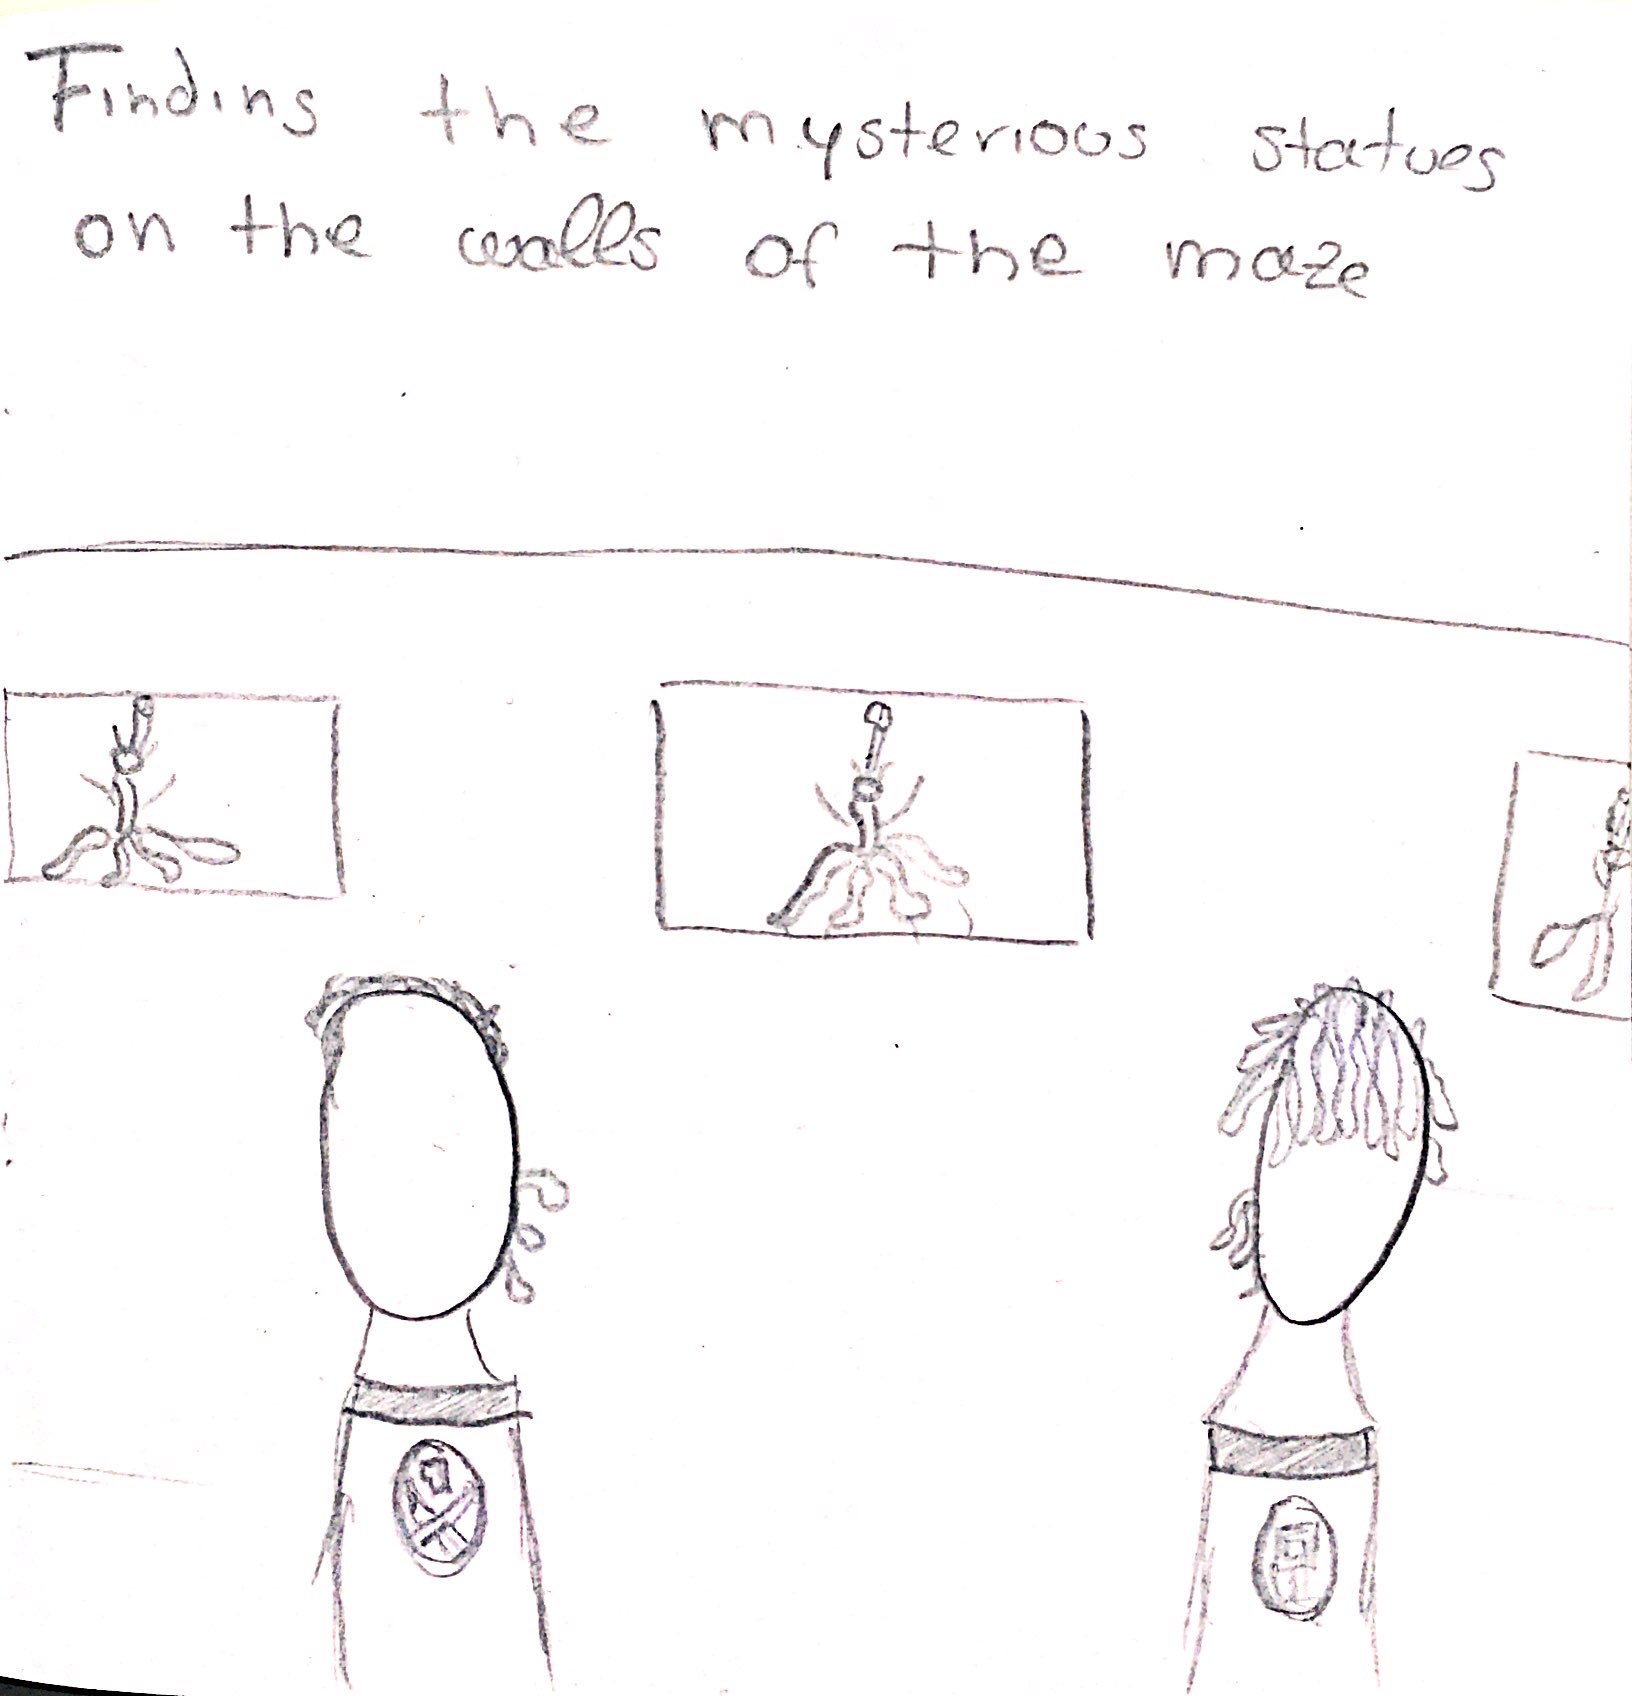 Finding the mysterious statues
on the walls of the maze